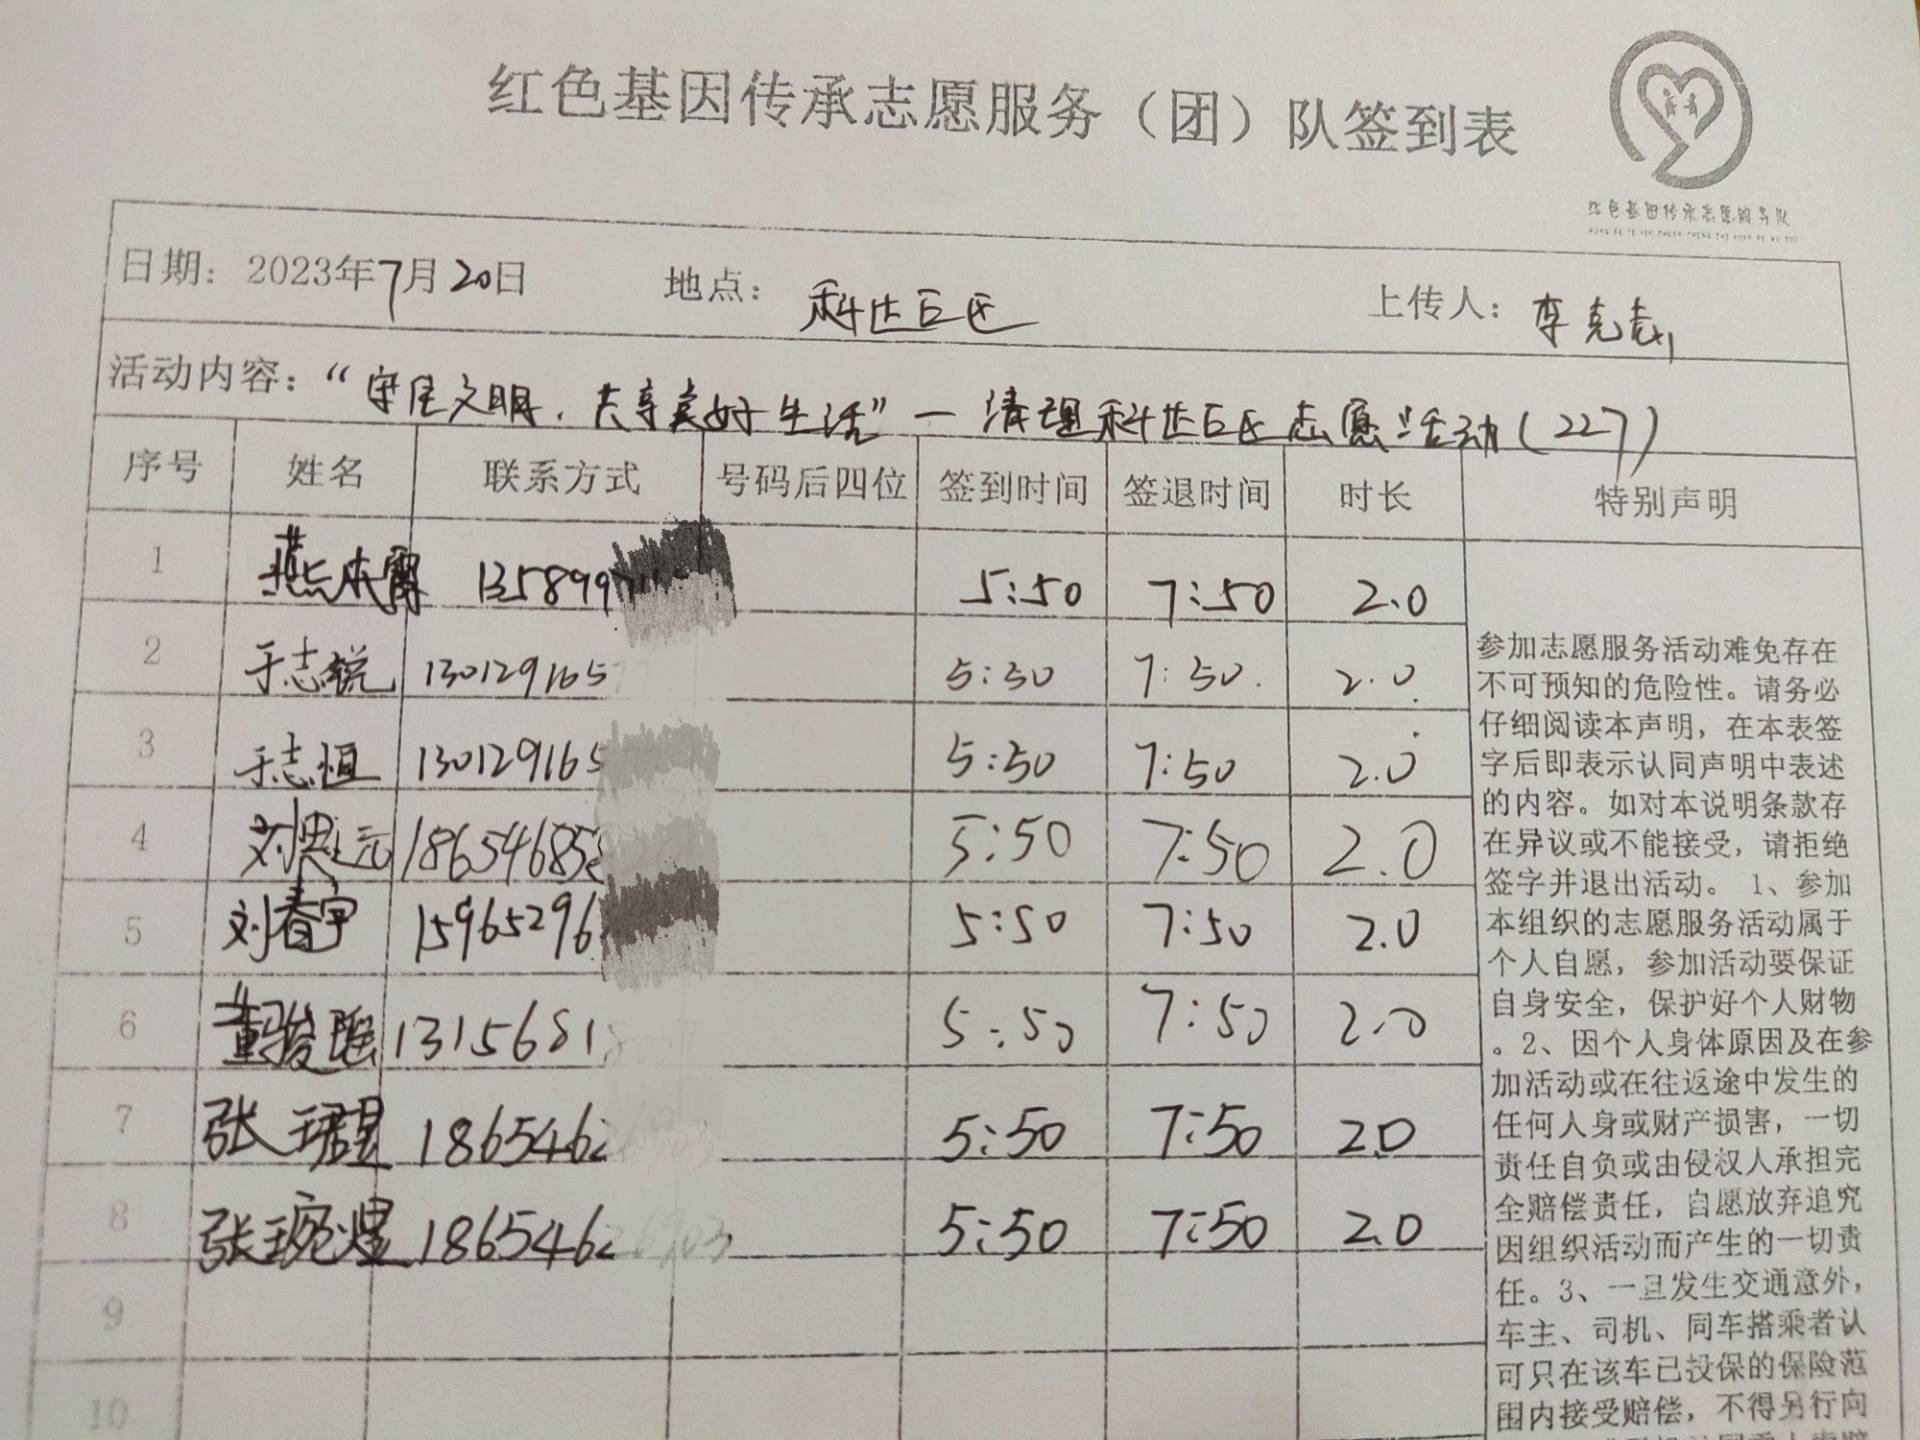 红色基因传承志愿服务（团）队签到表
红色基因传承志愿服务队
日期：2023年7月20日 地点：科达巨区 上传人：李克志
活动内容：“守住文明、共享美好生活”—清理科达巨区志愿活动(227)
序号 姓名 联系方式 号码后四位 签到时间 签退时间 时长 特别声明
1 燕本霨 1358999 5:50 7:50 2.0
2 于志锐 130129165 5:50 7:50. 2.0
3 于志恒 130129165 5:50 7:50 2.0
4 刘思元 186546852 5:50 7:50 2.0
5 刘春宇 15965296 5:50 7:50 2.0
6 董骏瑶 1315681 5:50 7:50 2.0
7 张珺瑆 1865462 5:50 7:50 2.0
8 张琬煜 1865462 5:50 7:50 2.0
9
10
参加志愿服务活动难免存在
不可预知的危险性。请务必
仔细阅读本声明，在本表签
字后即表示认同声明中表述
的内容。如对本说明条款存
在异议或不能接受，请拒绝
签字并退出活动。 1、参加
本组织的志愿服务活动属于
个人自愿，参加活动要保证
自身安全，保护好个人财物
。2、因个人身体原因及在参
加活动或在往返途中发生的
任何人身或财产损害，一切
责任自负或由侵权人承担完
全赔偿责任，自愿放弃追究
因组织活动而产生的一切责
任。3、一旦发生交通意外，
车主、司机、同车搭乘者认
可只在该车已投保的保险范
围内接受赔偿，不得另行向